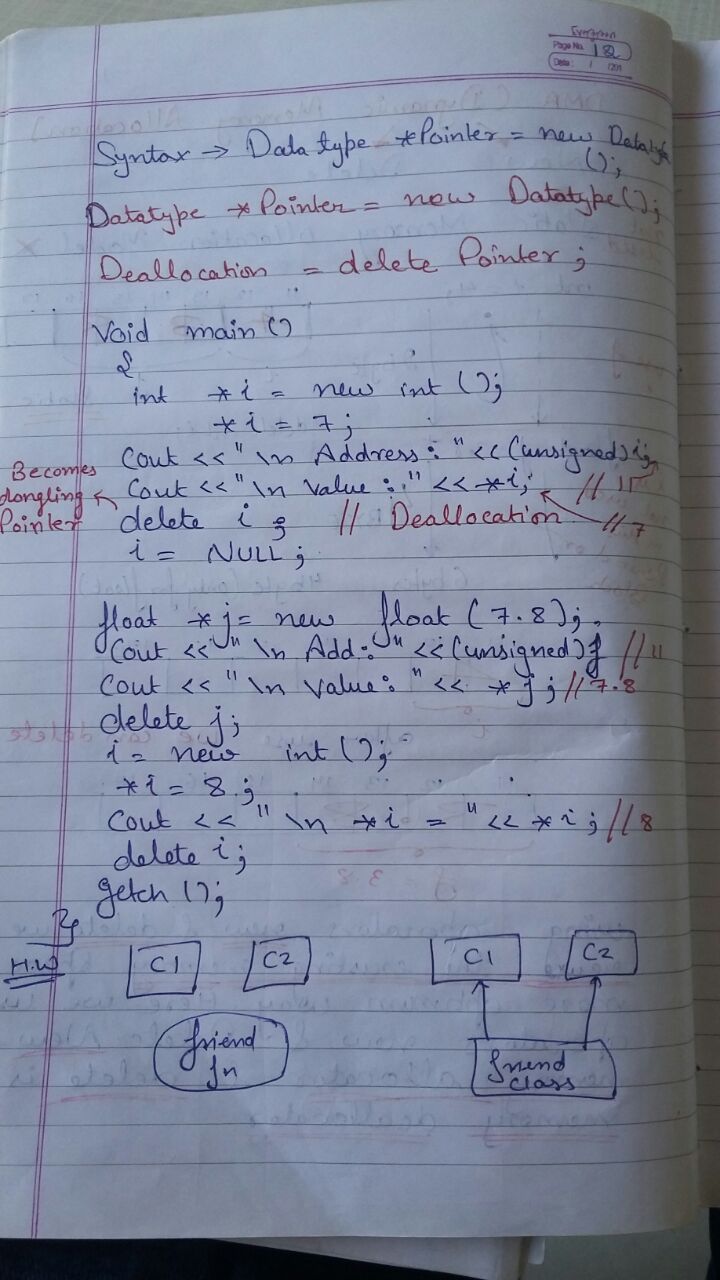 Evergreen
Page No. 12
Date: / /201
Syntax → Data type *Pointer = new Datatype
();
Datatype *Pointer = new Datatype();
Deallocation = delete Pointer;
Void main()
{
int *i = new int ();
*i = 7;
Cout <<"\n Address: "<< (unsigned)i;
Becomes dangling Pointer
Cout <<"\n Value :" << *i; // 11
delete i; // Deallocation //7
i = NULL;
float *j= new float (7.8);
Cout <<"\n Add:" <<(unsigned)j //11
Cout <<"\n Value: " << *j; //7.8
delete j;
i= new int ();
*i = 8;
Cout << "\n *i = "<< *i; //8
delete i;
getch ();
}
H.W C1 C2 C1 C2
friend fn
friend class